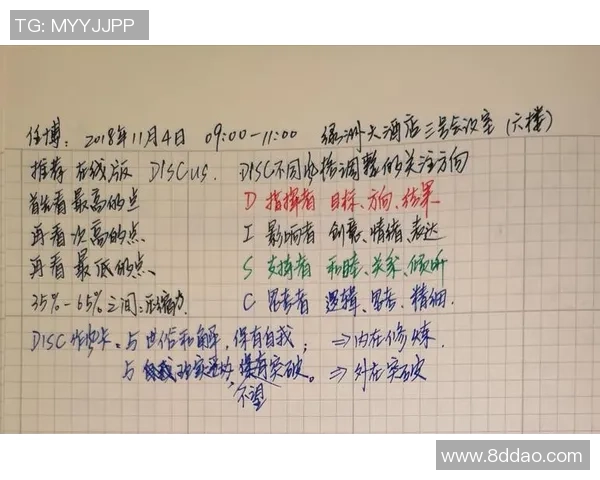 TG: MYYJJPP
任博: 2018年11月4日 09:00-11:00 绿洲大酒店三号会议室(六楼)
推荐在线版 DISCUS. DISC不同风格调整的关注方向
首先看最高的点 D 指挥者 目标、方向、结果
再看次高的点 I 影响者 创意、情绪、表达
再看最低的点、 S 支持者 和睦、关系、倾听
35%-65%之间: C 思考者 逻辑、思考、精细.
DISC 与世俗和解,保有自我; ⇒内在修炼.
与 突破。⇒外在突破
不望
www.8ddao.com